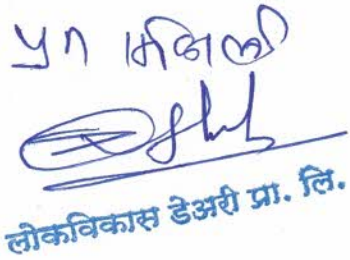 प्रत मिळाली
लोकविकास डेअरी प्रा. लि.